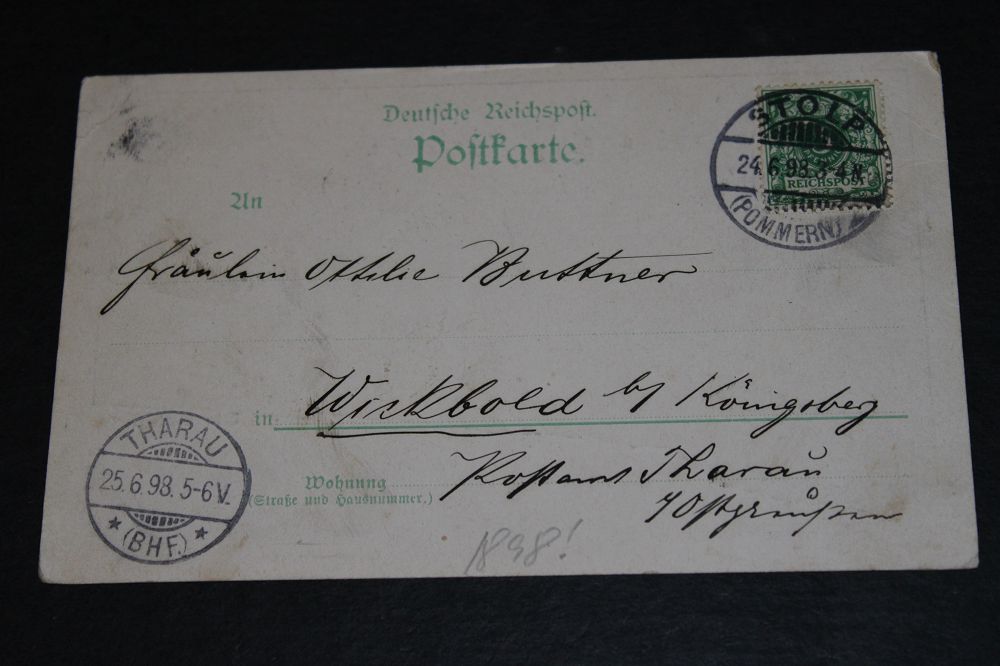 Deutsche Reichspost.
Postkarte.
STOLP
24.6.98.3-4 N.
(POMMERN)
REICHSPOST
An
Fräulein Ottilie Buttner
in Wickbold b/ Königsberg
Wohnung
(Straße und Hausnummer.)
Postamt Tharau
Ostpreußen
THARAU
25.6.98.5-6V.
(BHF.)
898!